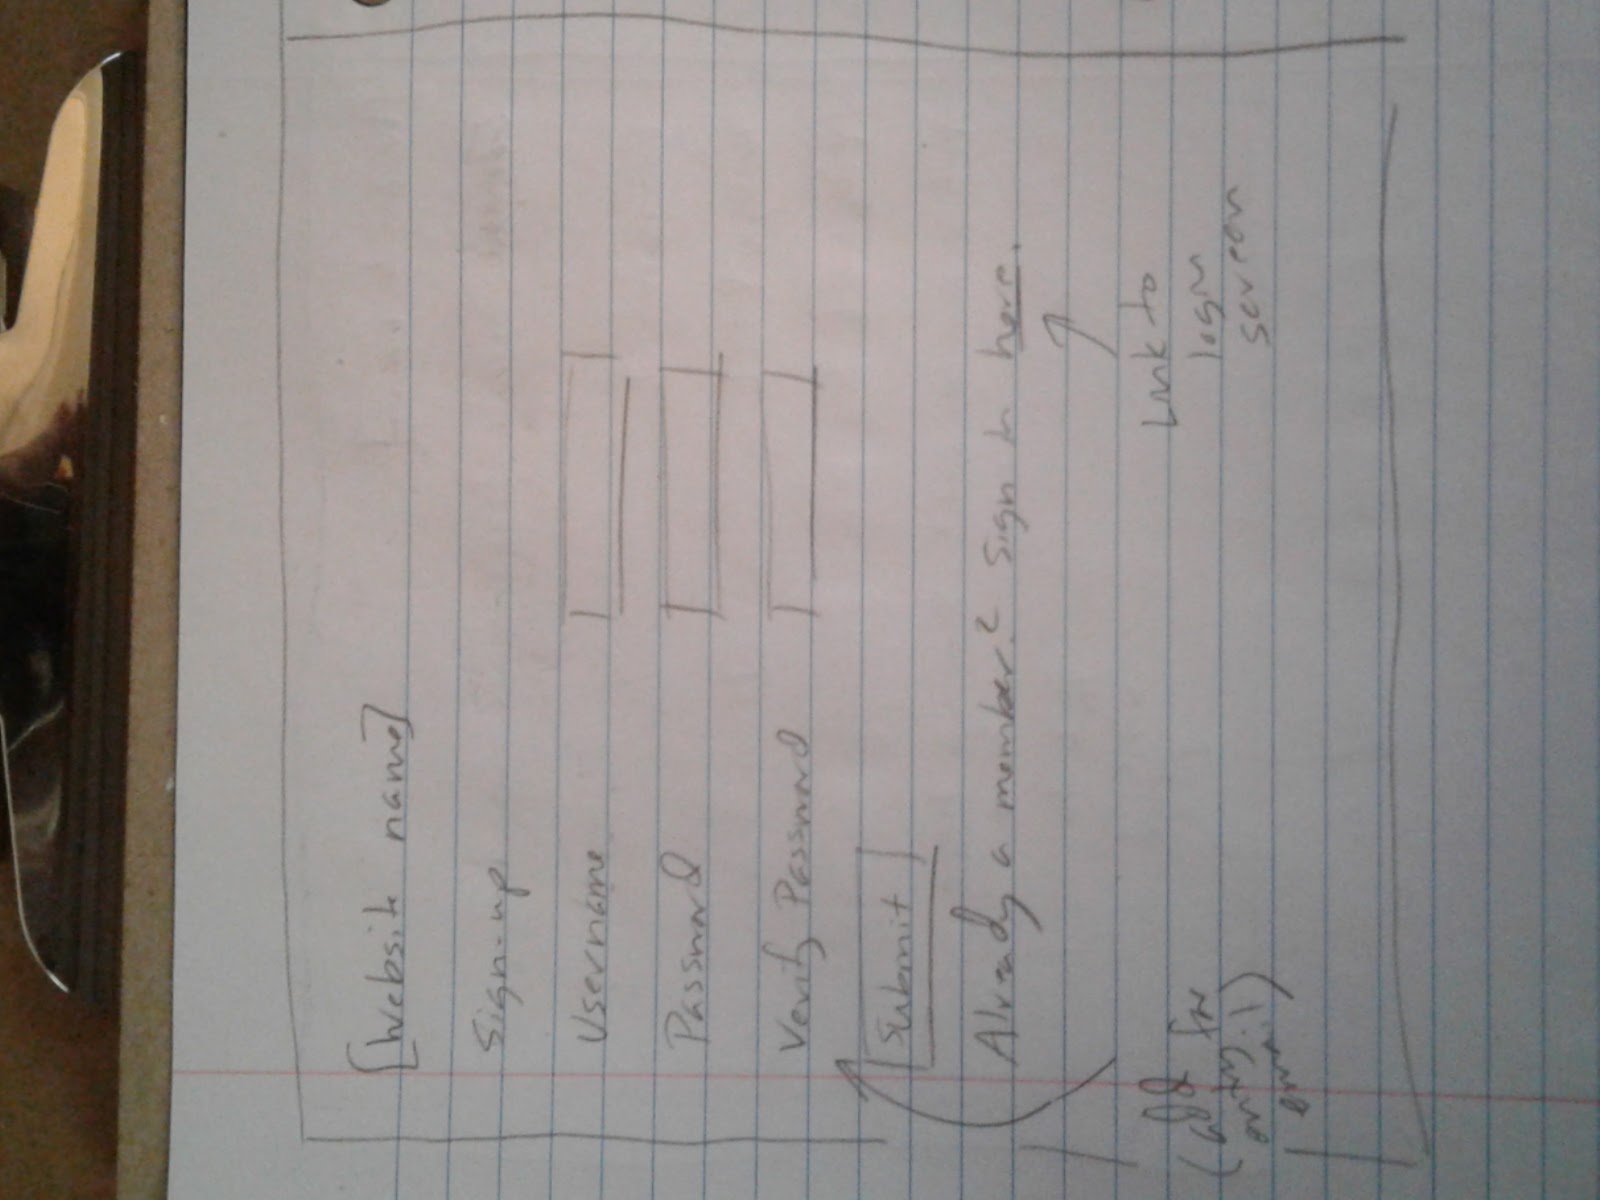 [Website name]
Sign-up
Username
Password
Verify Password
Submit
Already a member? Sign in here.
Link to
login
screen
(add for
entry.1
email)